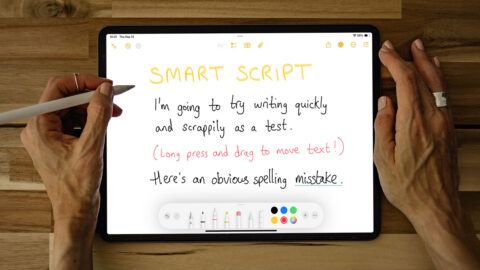 SMART SCRIPT
I'm going to try writing quickly
and scrappily as a test.
(Long press and drag to move text!)
Here's an obvious spelling misstake.